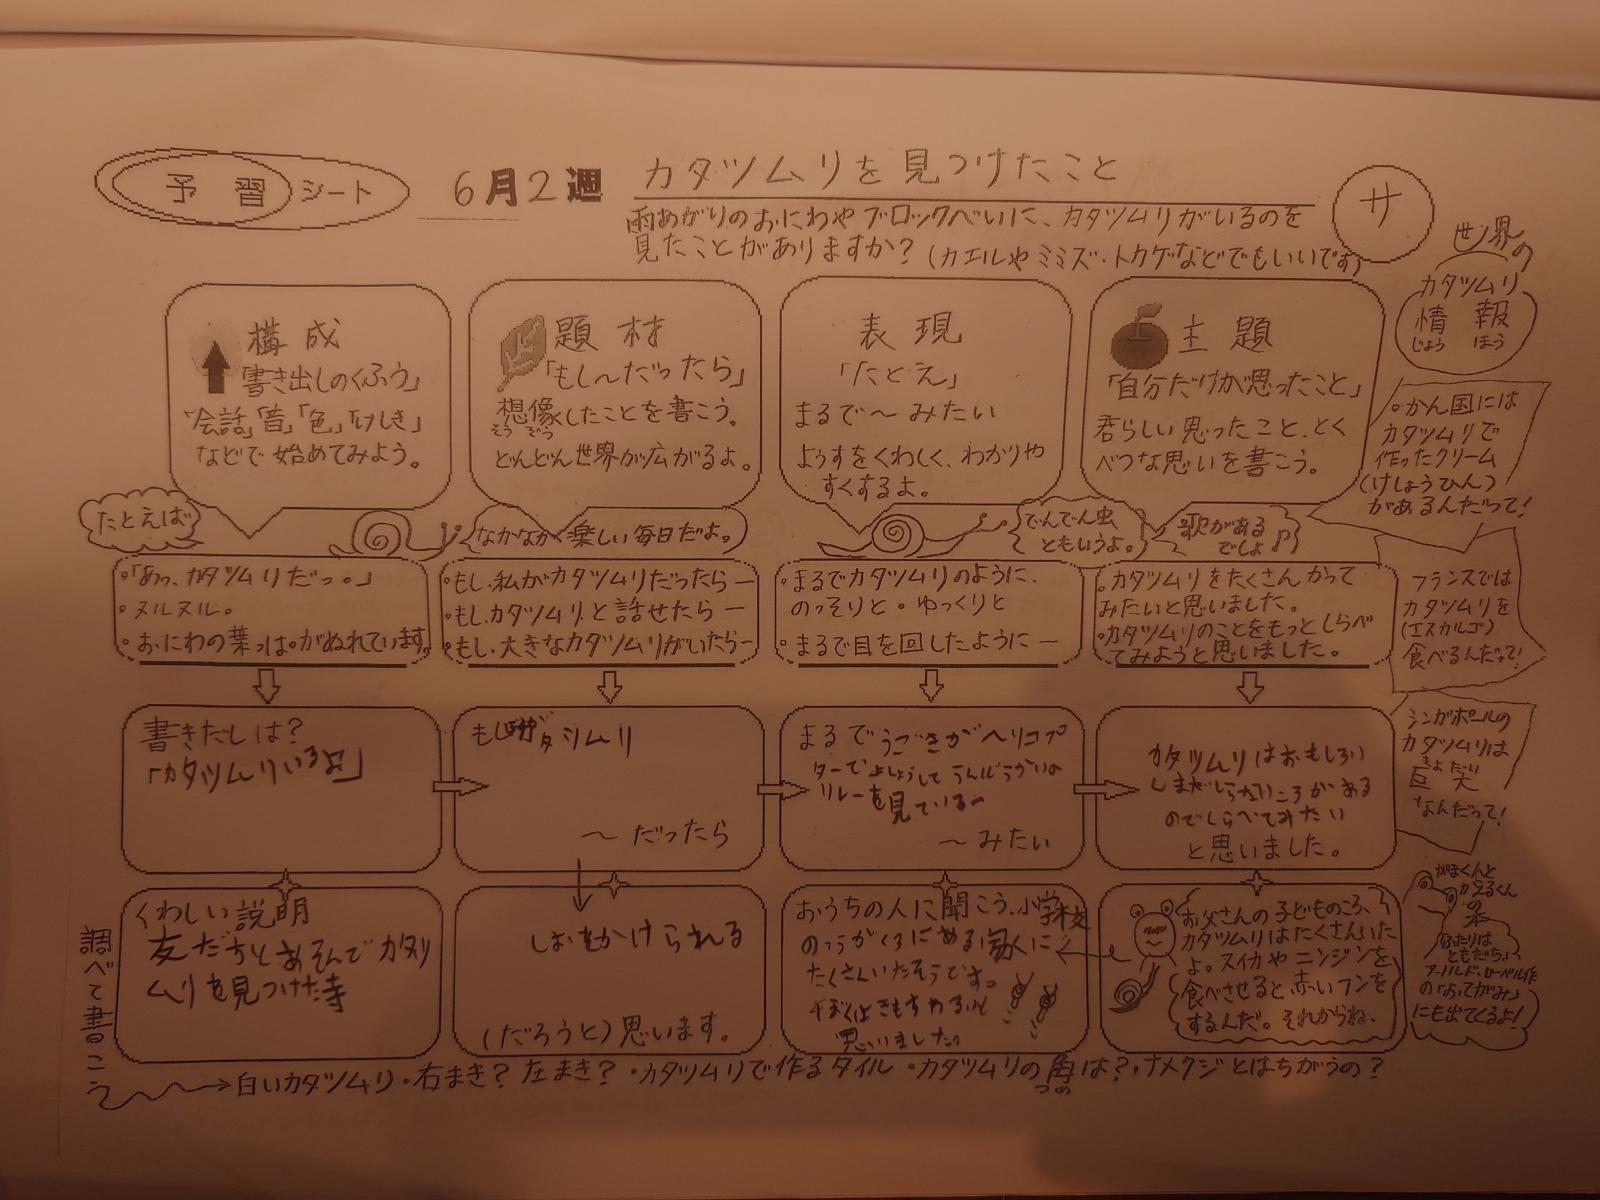 予習シート
6月2週
カタツムリを見つけたこと
サ
雨あがりのおにわやブロックべいに、カタツムリがいるのを
見たことがありますか?(カエルやミミズ・トカゲなどでもいいです)
構成
「書き出しのくふう」
「会話」「音」「色」「けしき」
などで始めてみよう。
題材
「もし〜だったら」
想像したことを書こう。
そうぞう
どんどん世界が広がるよ。
表現
「たとえ」
まるで〜みたい
ようすをくわしく、わかりや
すくするよ。
主題
「自分だけが思ったこと」
君らしい思ったこと、とく
べつな思いを書こう。
世界の
カタツムリ
情報
じょうほう
・かん国には
カタツムリで
作ったクリーム
(けしょうひん)
があるんだって!
たとえば
なかなか楽しい毎日だよ。
でんでん虫
ともいうよ。
歌がある
でしょ♪
・「あっ、カタツムリだっ。」
・ヌルヌル。
・おにわの葉っぱがぬれています。
・もし、私がカタツムリだったら―
・もし、カタツムリと話せたら―
・もし、大きなカタツムリがいたら―
・まるでカタツムリのように、
のっそりと・ゆっくりと
・まるで目を回したように―
・カタツムリをたくさんかって
みたいと思いました。
・カタツムリのことをもっとしらべ
てみようと思いました。
フランスでは
カタツムリを
(エスカルゴ)
食べるんだって!
書きだしは?
「カタツムリいるよ」
もし
カタツムリ
〜だったら
まるでうごきがヘリコプ
ターで
リレーを見ているの
〜みたい
カタツムリはおもしろい
ところがある
のでしらべてみたい
と思いました。
シンガポールの
カタツムリは
きょだい
巨大
なんだって!
くわしい説明
友だちとあそんでカタツ
ムリを見つけた
しおをかけられる
(だろうと)思います。
おうちの人に聞こう。小学校
たくさんいたそうです。
思いました。
お父さんの子どものころ、
カタツムリはたくさんいた
よ。スイカやニンジンを
食べさせると、赤いフンを
するんだ。それからね、
がまくんと
かえるくん
の本
ふたりは
ともだち
アーノルド・ローベル作
の「おてがみ」
にも出てくるよ!
調べて書こう
白いカタツムリ・右まき?左まき?・カタツムリで作るタイル・カタツムリの角は?・ナメクジとはちがうの?
つの